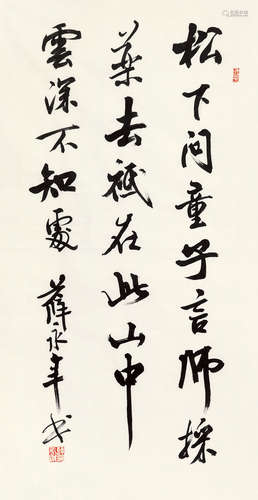 松下问童子言師採
藥去祗在此山中
雲深不知處 薛永年书